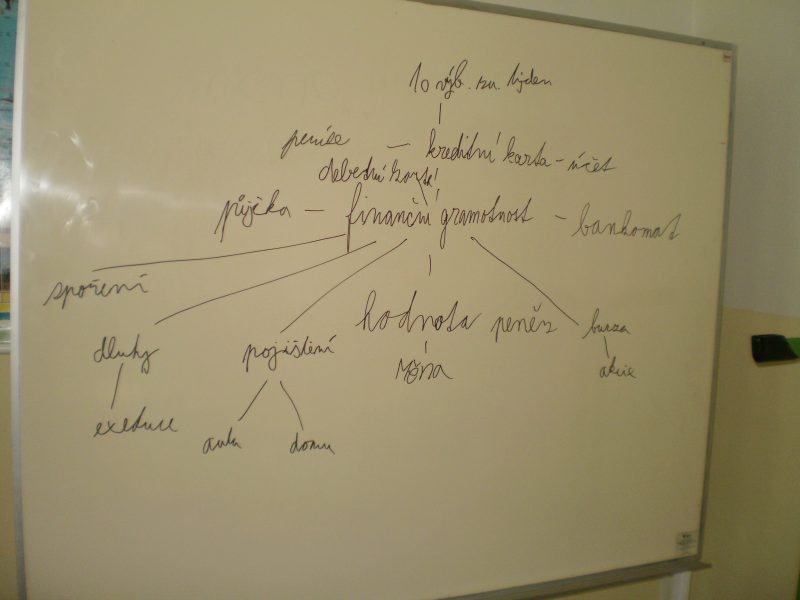 10 výb. za. týden
peníze – kreditní karta – účet
debední karta
půjčka – finanční gramotnost – bankomat
spoření
hodnota peněz
burza
dluhy
pojištění
měna
akcie
exekuce
auta
domu